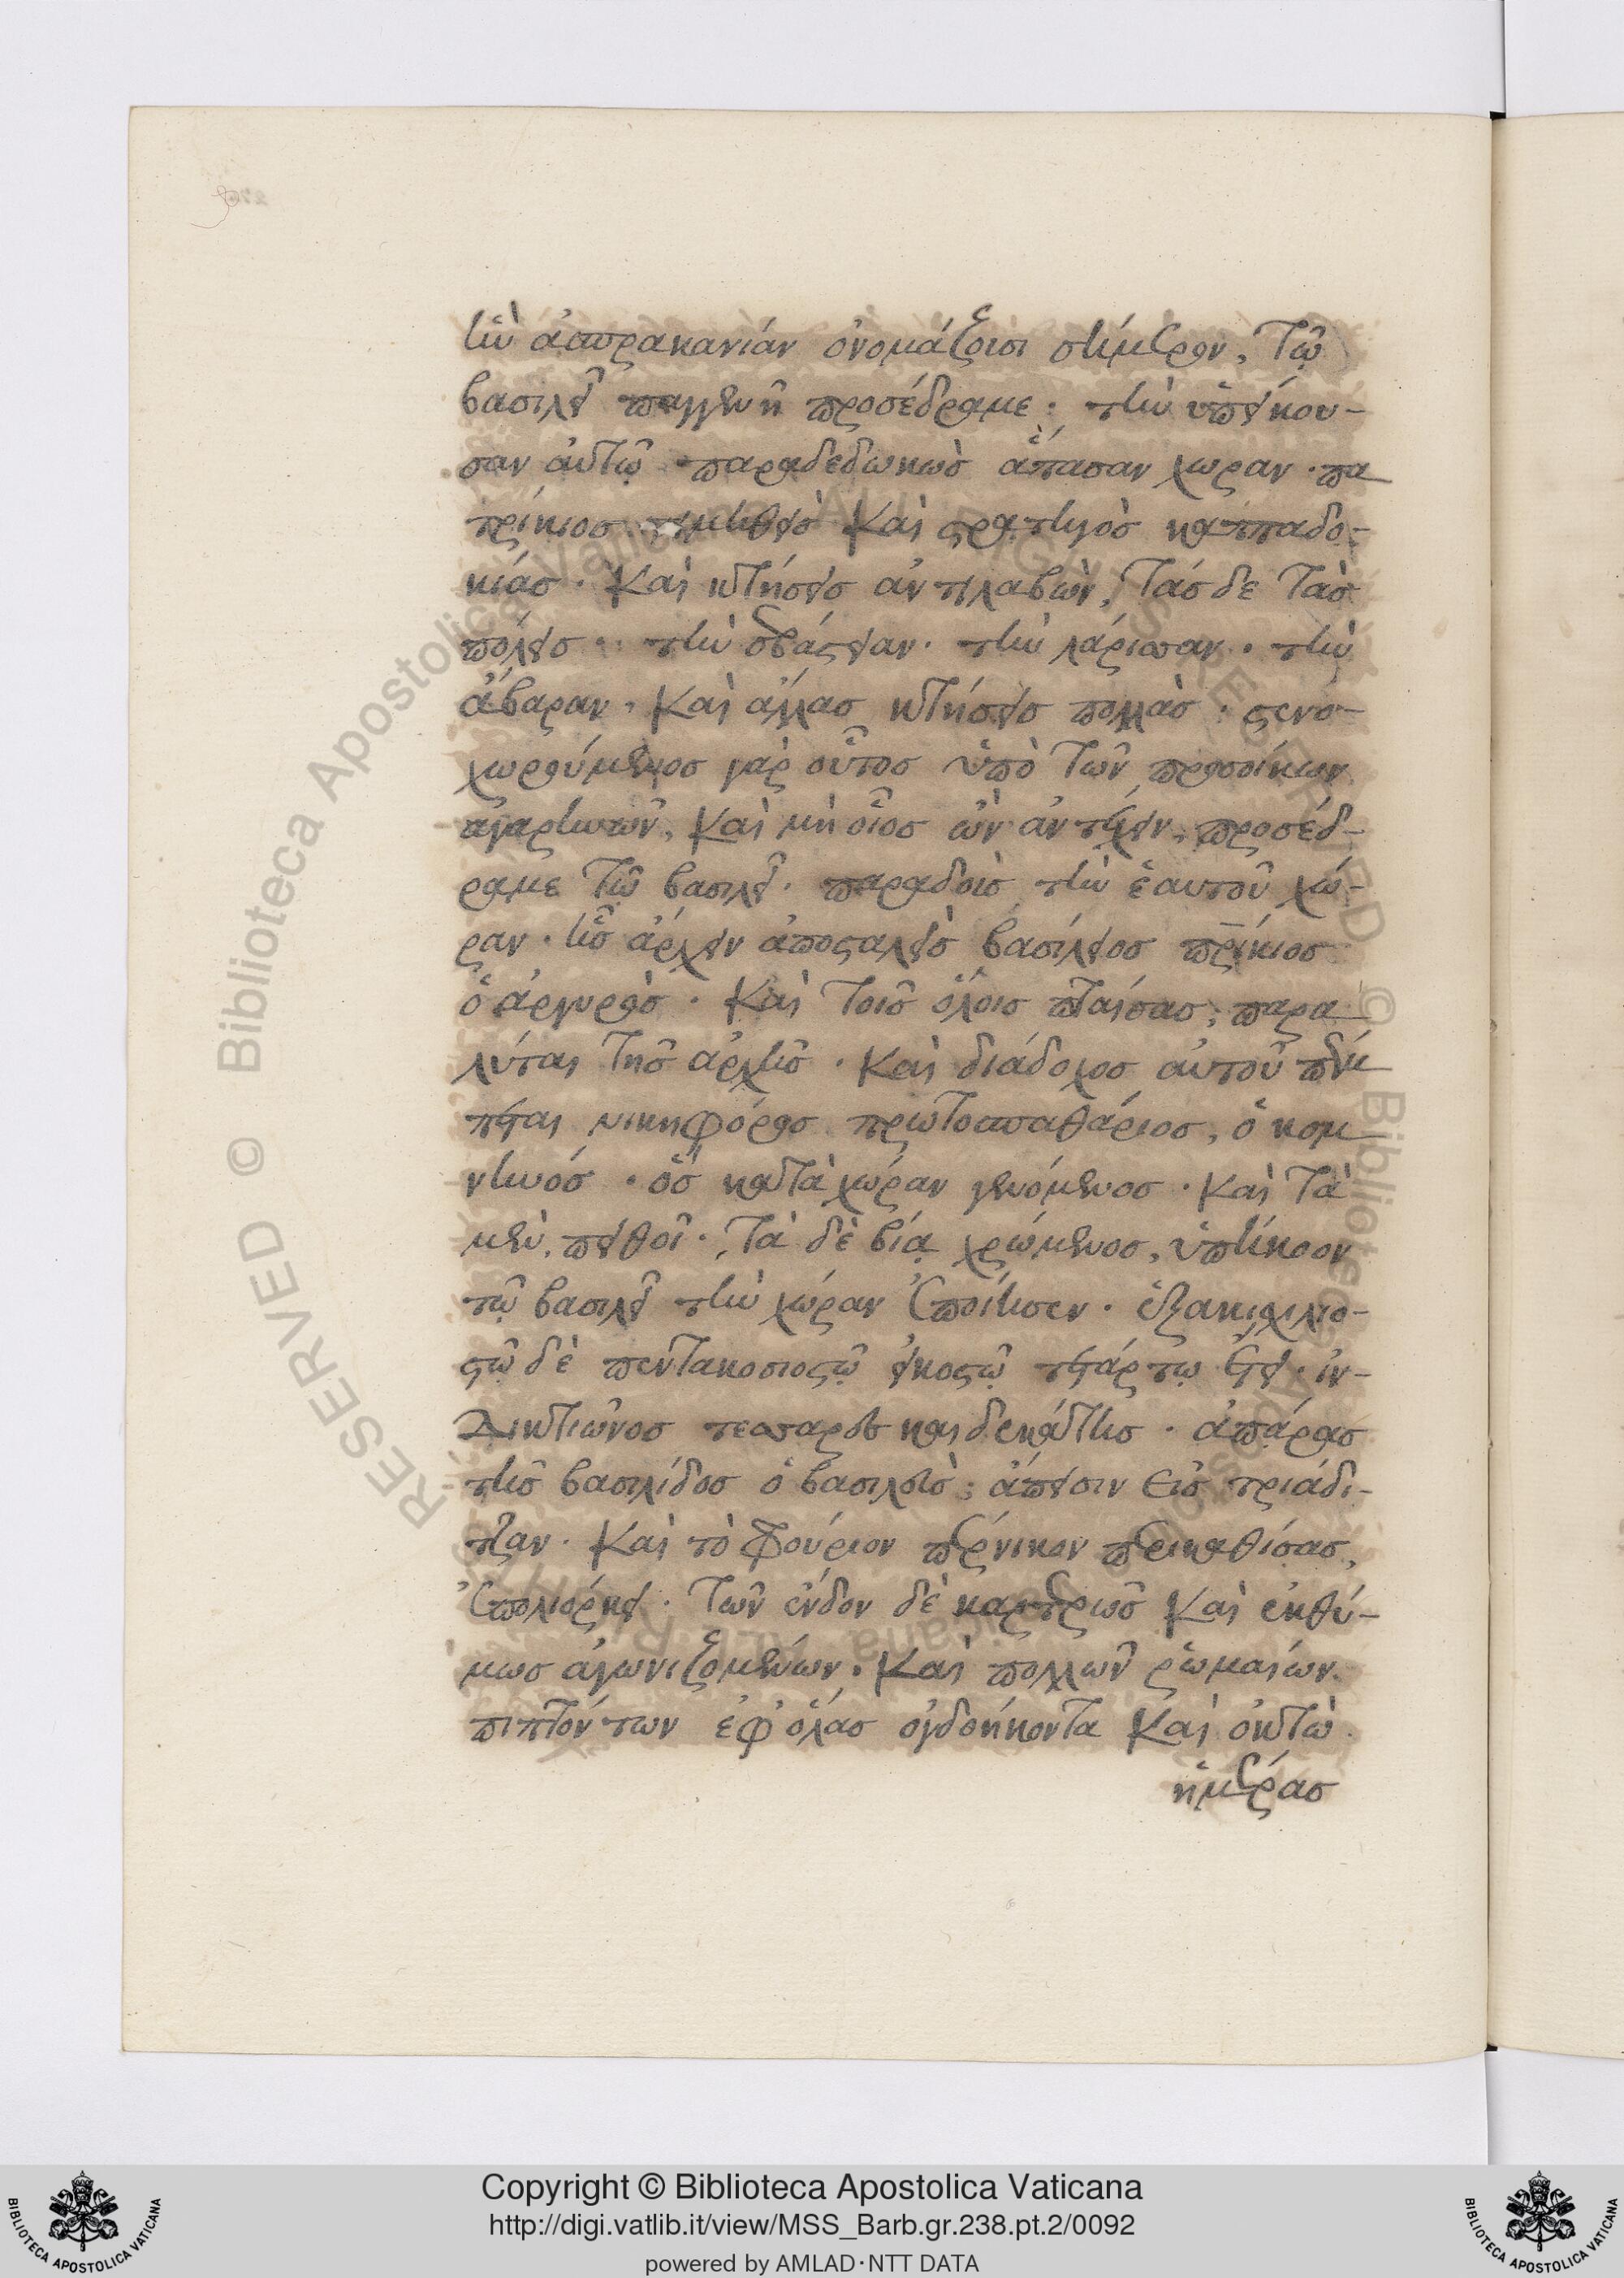 ἣν ἀσπρακανίαν ὀνομάζουσι σήμερον, τῷ
βασιλεῖ παγγενῆ προσέδραμε· τὴν ὑπείκου-
σαν αὐτῷ παραδεδωκὼς ἅπασαν χωραν· πα
τρίκιος τιμηθεὶς καὶ στρατηγὸς καππαδο-
κίας· καὶ κτήσεις ἀντιλαβὼν, τάς δε τὰς
πόλεις· τὴν σεβάστειαν· τὴν λάρισσαν· τὴν
ἄβαραν· καὶ ἄλλας κτήσεις πολλὰς· στενο-
χωρούμενος γὰρ οὗτος ὑπὸ τῶν προσοίκων
ἀγαρηνῶν, καὶ μὴ οἷος ὢν ἀντέχειν, προσέδ-
ραμε τῷ βασιλεῖ· παραδοὺς τὴν ἑαυτοῦ χώ-
ραν· ἧς ἄρχειν ἀποσταλεὶς βασίλειος πρίκιος
ὁ ἀργυρὸς· καὶ τοῖς ὅλοις πταίσας, παρα
λύεται τῆς ἀρχῆς· καὶ διάδοχος αὐτοῦ πέμ
πεται νικηφόρος πρωτοσπαθάριος, ὁ κομ
νηνός· ὃς κατὰ χώραν γενόμενος· καὶ τὰ
μὲν πειθοῖ· τὰ δὲ βίᾳ χρώμενος, ὑπήκοον
τῷ βασιλεῖ τὴν χώραν ἐποίησεν· ἑξακισχιλιο-
στῷ δὲ πεντακοσιοστῷ εἰκοστῷ τετάρτῳ ἔτει· ἰν-
δικτιῶνος τεσσαρεσκαιδεκάτης· ἀπάρας
τῆς βασιλίδος ὁ βασιλεὺς, ἄπεισιν εἰς τριάδι-
τζαν· καὶ τὸ φρούριον πέρνικον περικαθίσας,
ἐπολιόρκει· τῶν ἔνδον δὲ καρτερῶς καὶ ἐκθύ-
μως ἀγωνιζομένων· καὶ πολλῶν ῥωμαίων
πιπτόντων ἐφ' ὅλας ὀγδοήκοντα καὶ ὀκτὼ
ἡμέρας
Copyright © Biblioteca Apostolica Vaticana
http://digi.vatlib.it/view/MSS_Barb.gr.238.pt.2/0092
powered by AMLAD·NTT DATA